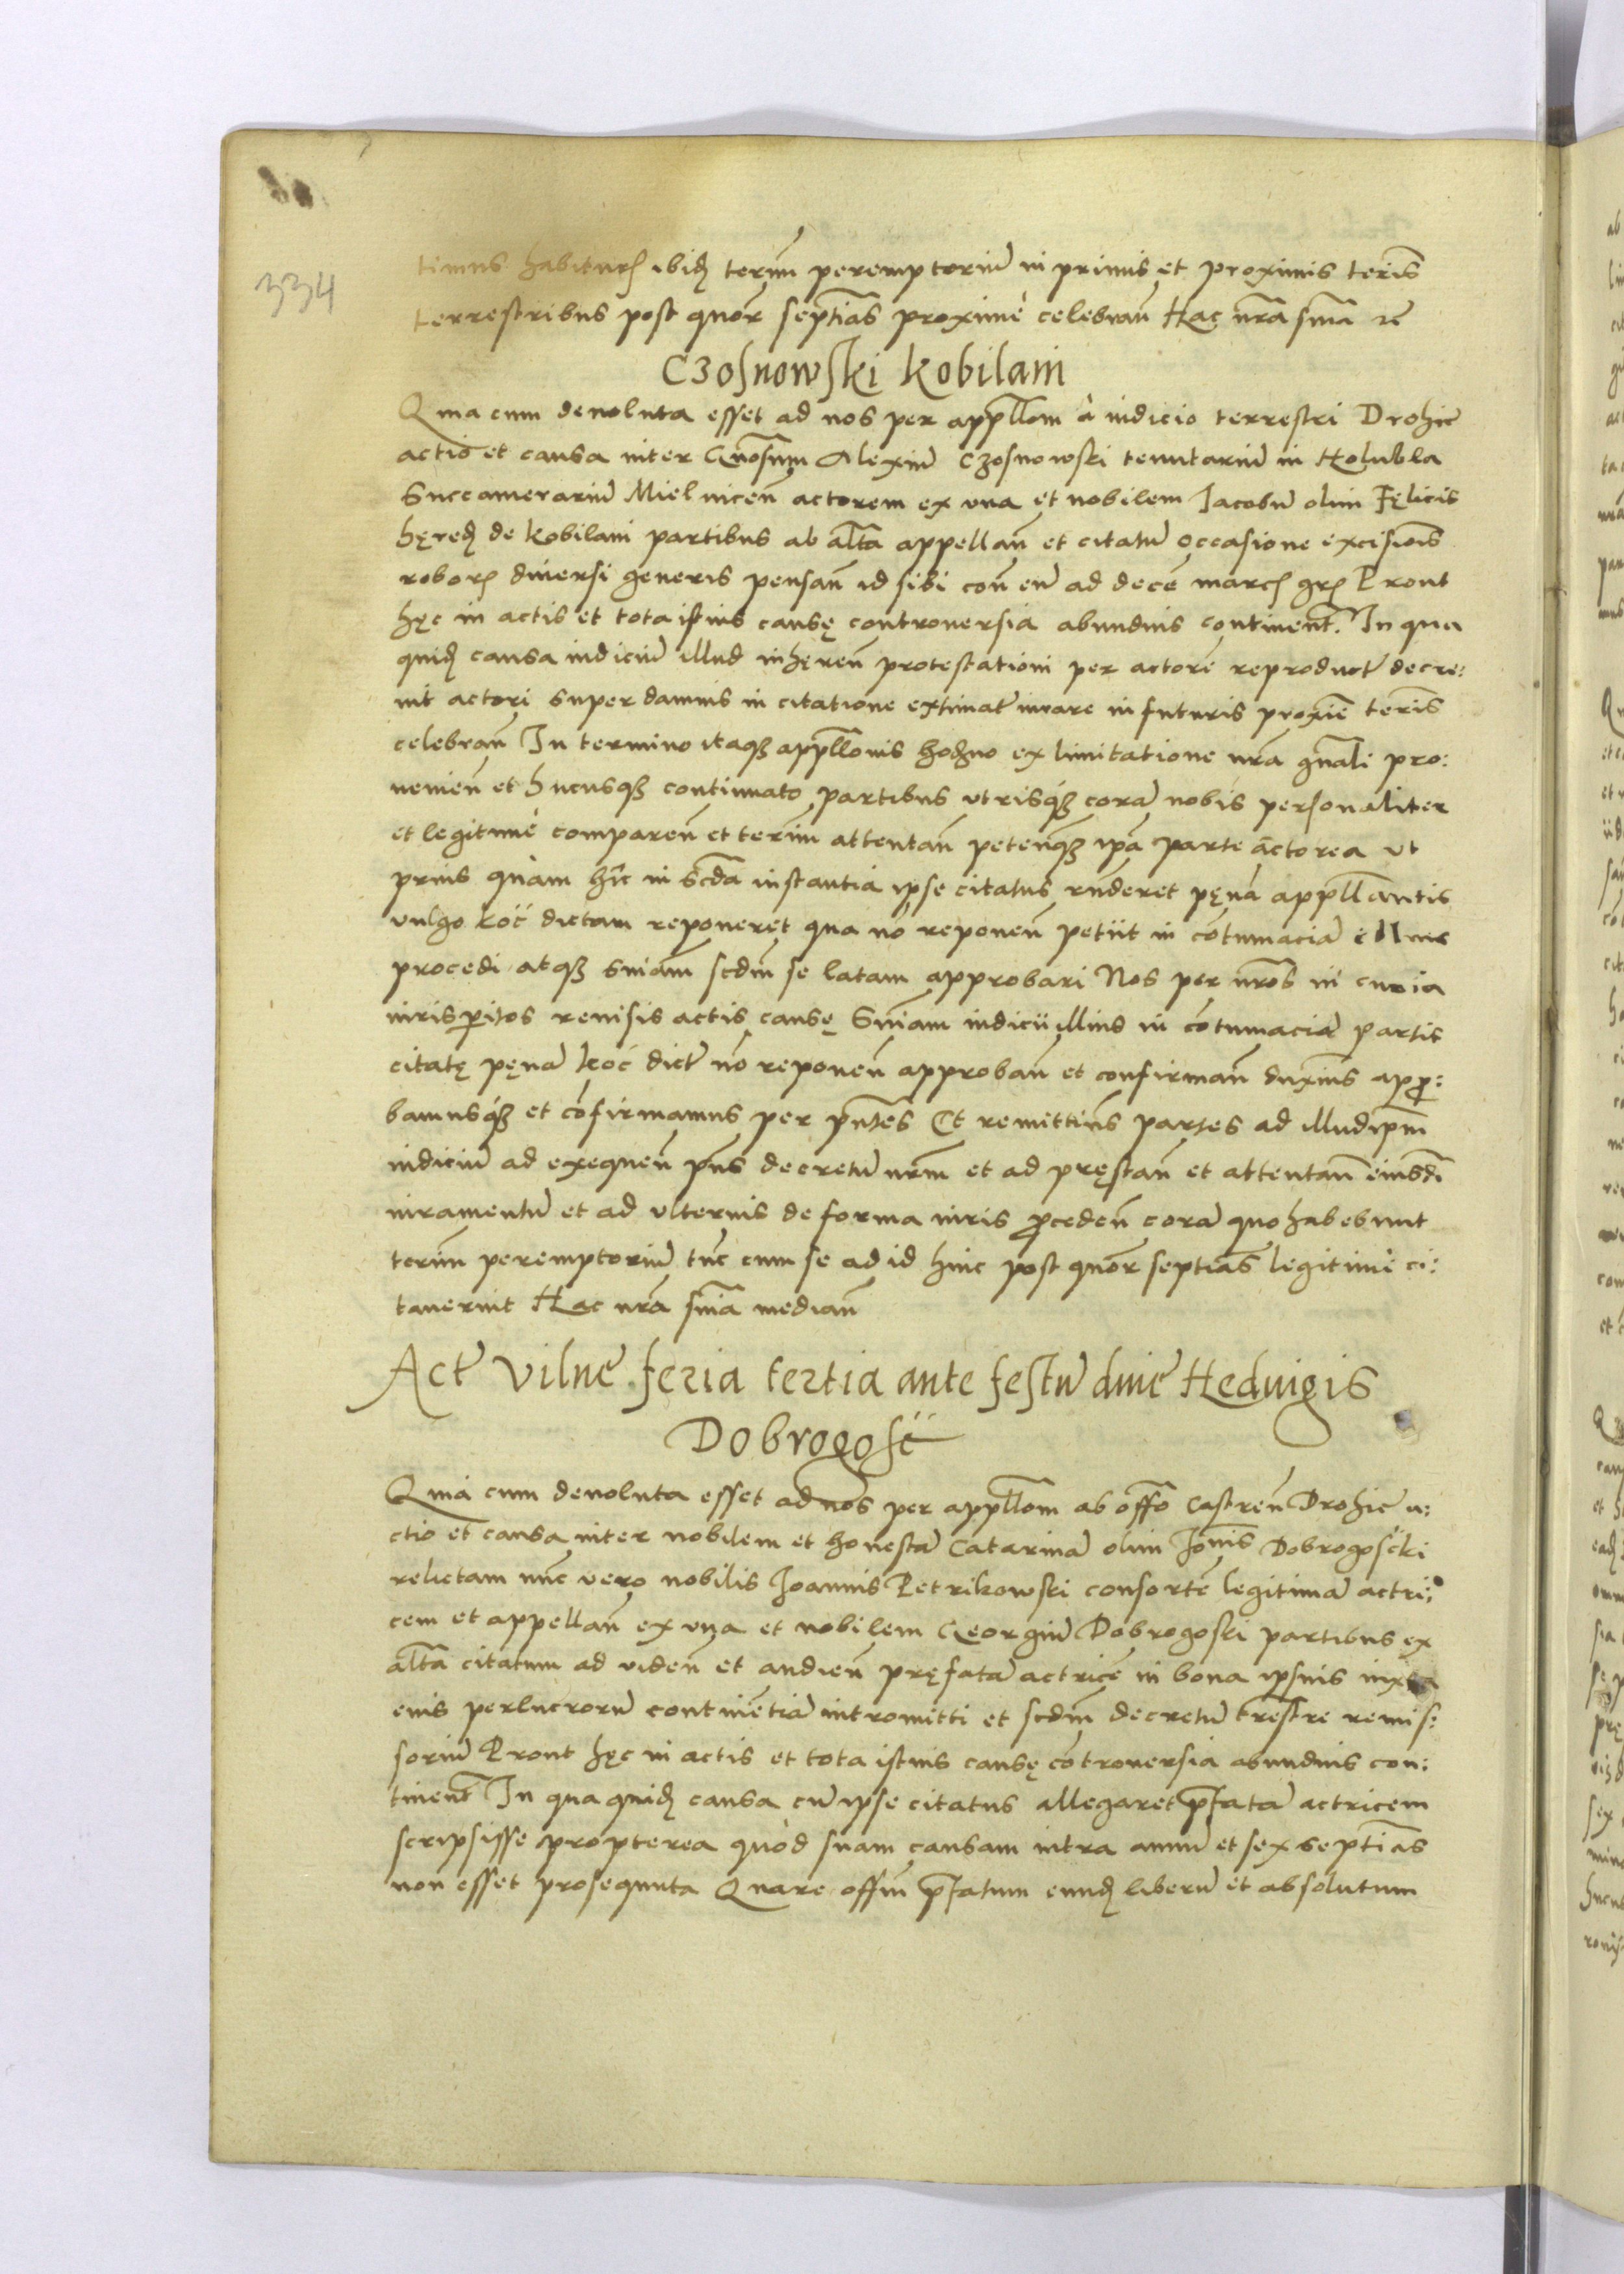 334
timus habituris ibidē terīm peremptoriū in primis et proximis terīs
terrestribus post quōr septīas proximè celebrań Hac nrā snīa
Czosnowski Kobilani
Quia cum deuoluta esset ad nos per appllōm à iudicio terrestri Drohic̄
actio et causa inter Gnosum Alexiū Czosnowski tenutariū in Holubla
Succamerariū Mielnicen̄ actorem ex vna et nobilem Jacobū olim Fęlicis
hęred de Kobilani partibus ab alta appellan̄ et citatū occasione excisiōis
robor diuersi generis pensan̄ id sibi con̄ eū ad decē marc gr Prout
hęc in actis et tota istius causę controuersia abundius continent̄. In qua
quid causa iudiciū illud inhęren̄ protestationi per actorē reproduct̄ decre:
uit actori super damnis in citatione extimat̄ iurare in futuris proxiē terīs
celebran̄ In termino itaq appllōnis hodno ex limitatione nrā gnāli pro:
uenien̄ et hucusq continuato partibus vtrisq corā nobis personaliter
et legitimè comparen̄ et terīm attentan̄ petenq ipā parte actorea vt
prius quàm hîc in scdā instantia ipse citatus rn̄deret pęnā appllantis
vulgo koć dictam reponeret qua nō reponen̄ petiit in cōtumaciā illius
procedi atq snīam scdm̄ se latam approbari Nos per nrōs in curia
iurisperitos reuisis actis causę snīam iudicii illius in cōtumaciā partis
citatę pęnā koć dict̄ nō reponen̄ approban̄ et confirman̄ duximus appro:
bamusq et cōfirmamus per pn̄tes Et remittimus partes ad illud ipm̄
iudiciū ad exequen̄ pn̄s decretū nrm̄ et ad pręstan̄ et attentan̄ eiusdē
iuramentū et ad vlterius de forma iuris proceden̄ corā quo habebunt
terīm peremptoriū tūc cum se ad id hinc post quōr septīas legitimè ci:
tauerint Hac nrā snīa median̄
Act̄ Vilnę feria tertia ante festū diuę Heduigis
Dobrogosć
Quia cum deuoluta esset ad nos per appllōm ab offō Castren̄ Drohic̄ a:
ctio et causa inter nobilem et honestā Catarinā olim Joānis Dobrogosćki
relictam nūc vero nobilis Joannis Petrikowski consortē legitimā actri:
cem et appellan̄ ex vna et nobilem Georgiū Dobrogoski partibus ex
alta citatum ad viden̄ et audien̄ pręfatā actricē in bona ipsius iuxta
eius perlucrorū continentiā intromitti et scdm̄ decretū trestre remis:
soriū Prout hęc in actis et tota istius causę cōtrouersia abundius con:
tinent̄ In qua quid causa cū ipse citatus allegaret pfatā actricem
scripsisse propterea quòd suam causam intra annū et sex septīas
non esset prosequuta Quare offīm pfatum eund liberū et absolutum